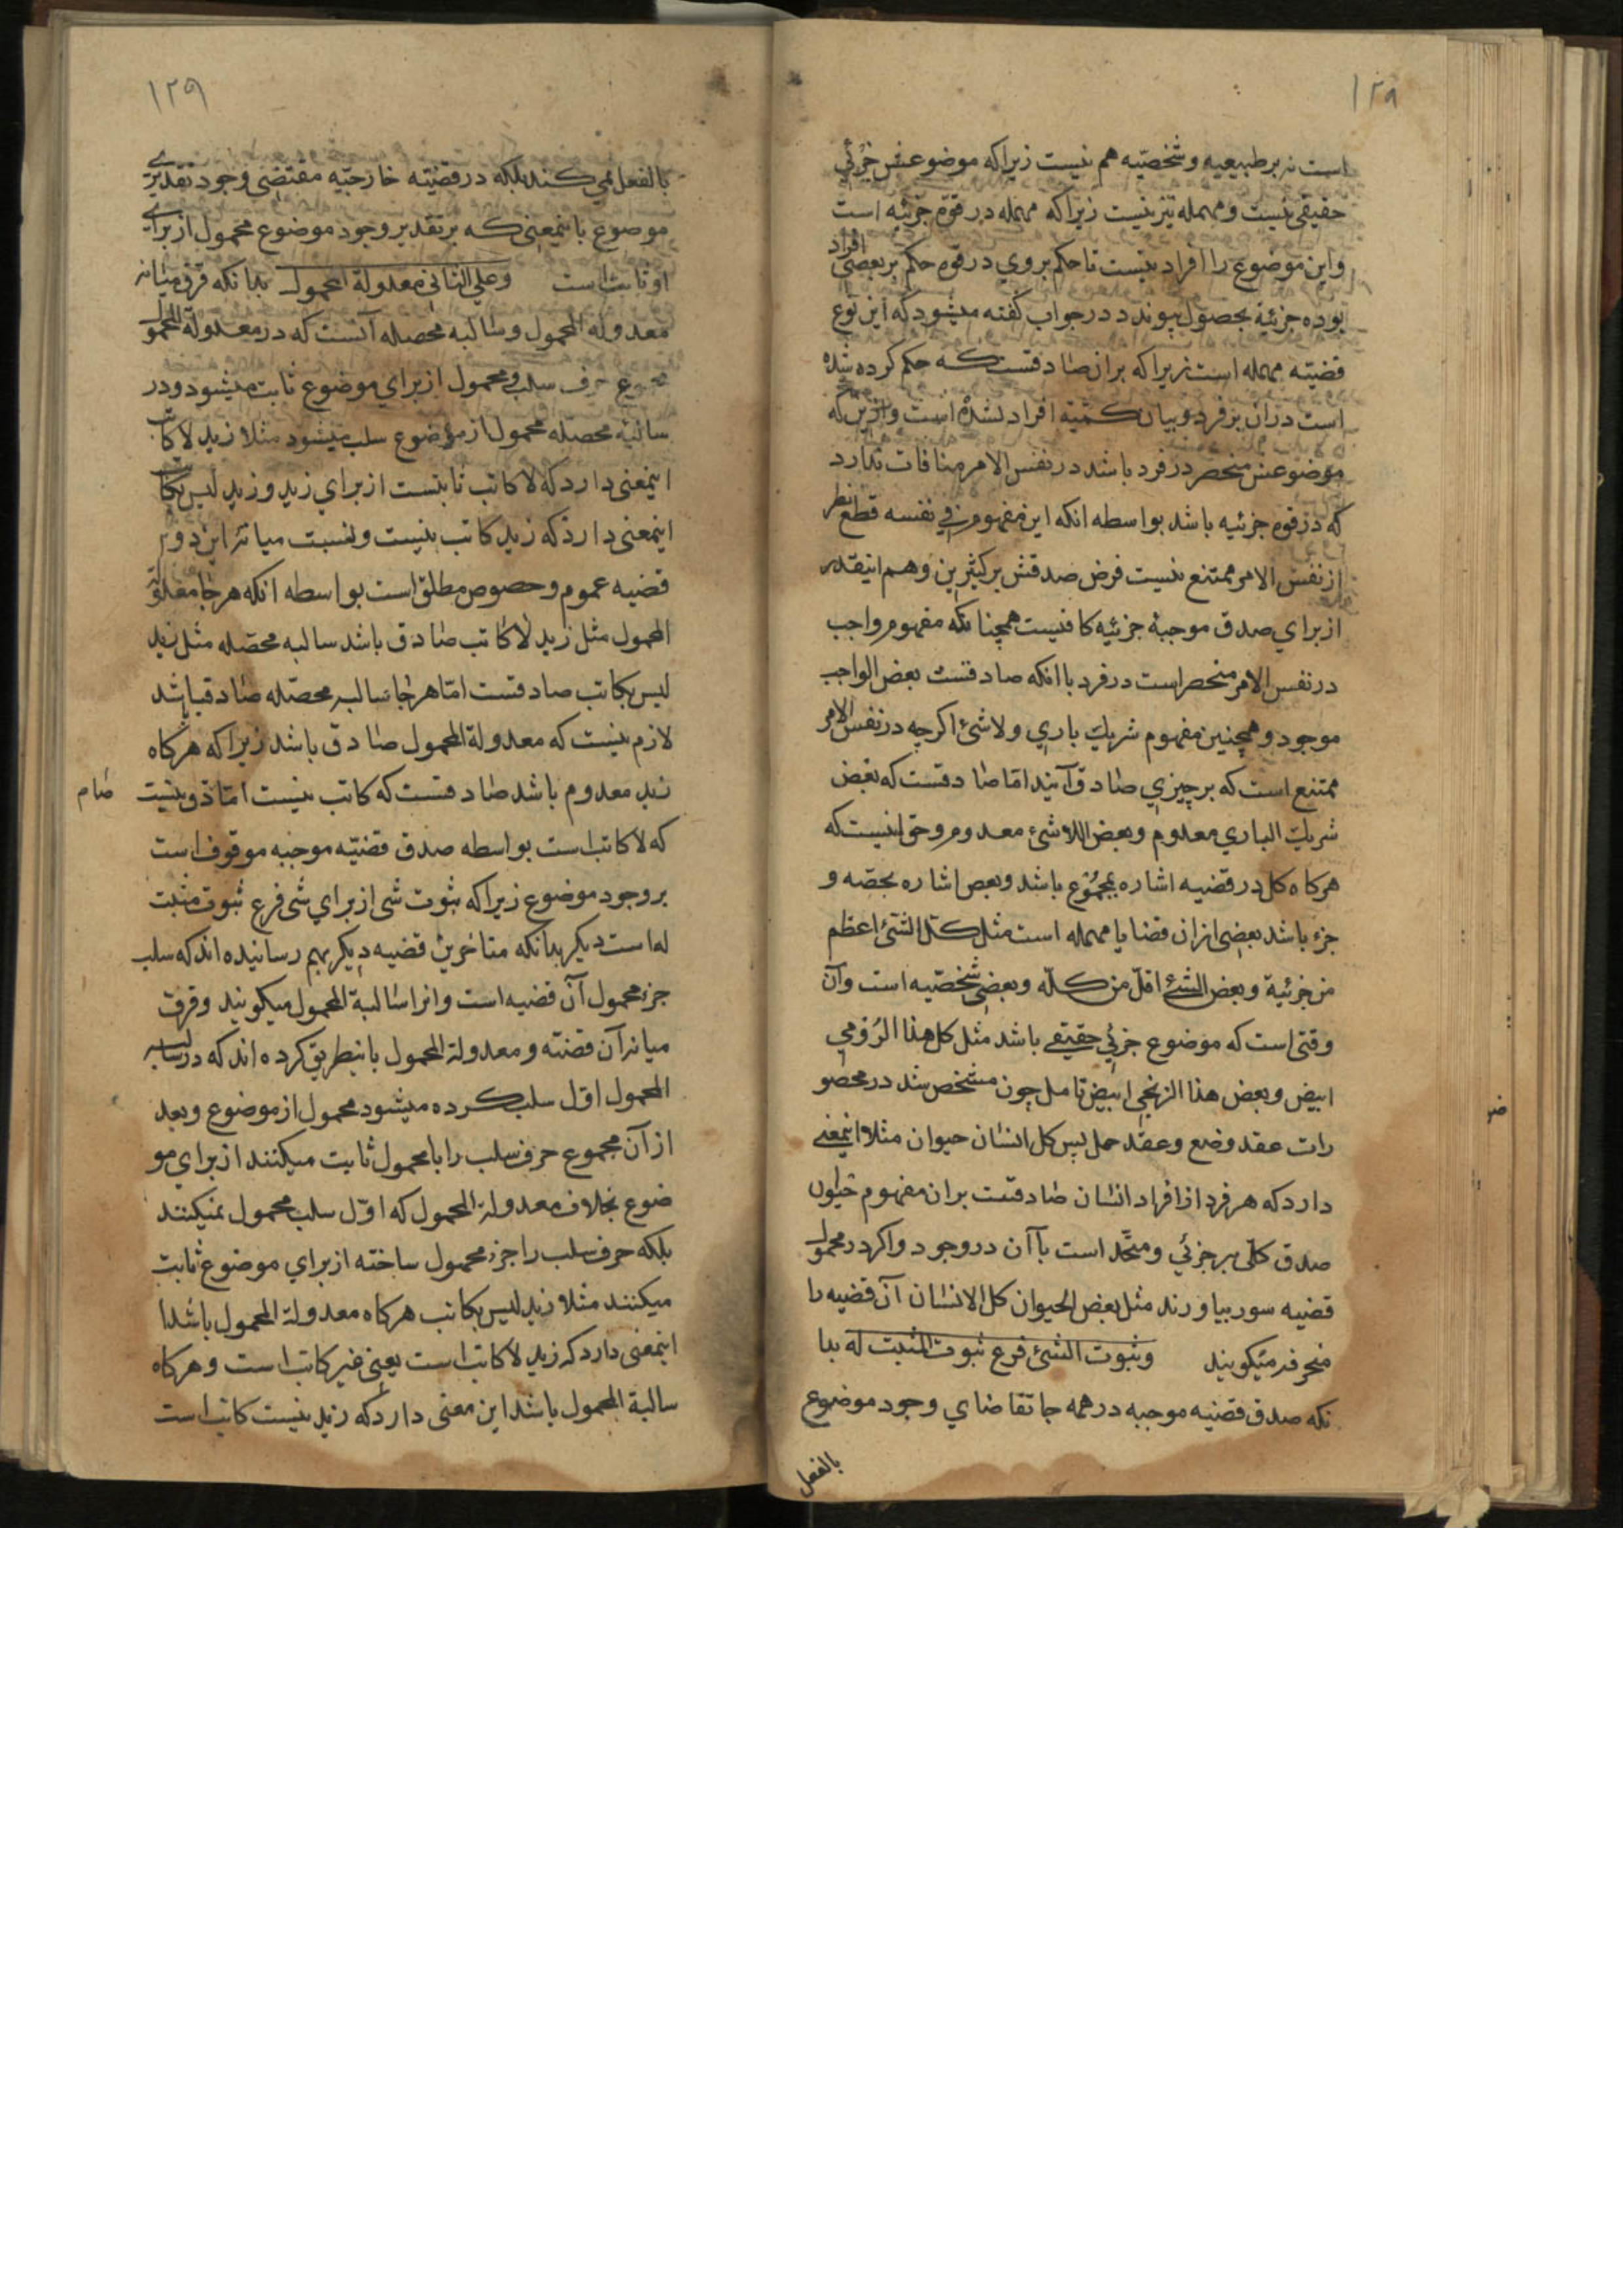 ١٢٨
است نه بر طبیعیه و شخصیّه هم نیست زیرا که موضوعش جزئي
حقیقی نیست و مهمله نیز نیست زیرا که مهمله در قوّه جزئیه است
و این موضوع را افراد نیست تا حکم بروي در قوه حکم بر بعضی افراد
بوده جزئیه بحصول پیوندد در جواب کفته میشود که این نوع
قضیّه مهمله است زیرا که بران صادقست که حکم کرده شده
است دران بر فرد و بیان کمّیّة افراد نشده است و ازین که
موضوعش منحصر در فرد باشد در نفس الامر منافات ندارد
که در قوه جزئیه باشد بواسطه انکه این مفهوم في نفسه قطع نظر
از نفس الامر ممتنع نیست فرض صدقش بر کثیرین و هم اینقدر
از براي صدق موجبۀ جزئیه کافیست همچنانکه مفهوم واجب
در نفس الامر منحصر است در فرد با انکه صادقست بعض الواجب
موجود و همچنین مفهوم شریك باري و لاشئ اکرچه در نفس الامر
ممتنع است که بر چیزي صادق آیند امّا صادقست که بعض
شریك الباري معدوم و بعض اللاشئ معدوم و حق انیست که
هرکاه کل در قضیه اشاره بمجموع باشد و بعض اشاره بحصّه و
جزء باشد بعضی ازان قضایا مهمله است مثل کلّ الشئ اعظم
من جزئیة و بعض الشئ اقلّ من کلّه و بعضی شخصّیه است وآن
وقتی است که موضوع جزئي حقیقی باشد مثل کل هذا الرّومي
ابیض و بعض هذا الزنجي ابیض تامل چون مشخص شد در محصو
رات عقد وضع و عقد حمل پس کل انسان حیوان مثلا اینمعنی
دارد که هر فرد از افراد انسان صادقست بران مفهوم حیوان
صدق کلّی بر جزئي و متّحد است با آن در وجود و اکر در محمول
قضیه سور بیاورند مثل بعض الحیوان کل الانسان آن قضیه را
منحرفه میکویند وثبوت الشئ فرع ثبوت المثبت له بدا
نکه صدق قضیه موجبه در همه جا تقاضاي وجود موضوع
بالفعل
ضو
١٢٩
بالفعل نمي کند بلکه در قضیّه خارجیّه مقتضی وجود تقدیري
موضوع باینمعنی که بر تقدیر وجود موضوع محمول از براي
او ثابت است وعلی الثانی معدولة المحمول بدانکه فرق میانه
معدولة المحمول و سالبه محصله آنست که در معدولة المحمول
مجموع حرف سلب و محمول از براي موضوع ثابت میشود و در
سالبۀ محصّله محمول از موضوع سلب میشود مثلا زید لا کاتب
اینمعنی دارد که لا کاتب ثابتست از براي زید و زید لیس بکاتب
اینمعنی دارد که زید کاتب نیست و نسبت میانۀ این دو
قضیه عموم و خصوص مطلق است بواسطه انکه هر جا معدولة
المحمول مثل زید لا کاتب صادق باشد سالبه محصّله مثل زید
لیس بکاتب صادقست امّا هر جا سالبه محصّله صادق باشد
لازم نیست که معدولة المحمول صادق باشد زیرا که هرکاه
زید معدوم باشد صادقست که کاتب نیست امّا صادق نیست
که لا کاتب است بواسطه صدق قضیّه موجبه موقوف است
بر وجود موضوع زیرا که ثبوت شی از براي شی فرع ثبوت مثبت
له است دیکر بدانکه متاخرین قضیه دیکر بهم رسانیده اند که سلب
جزء محمول آن قضیه است و انرا سالبة المحمول میکویند و فرق
میانه آن قضیّه و معدولة المحمول باینطریق کرده اند که در سالبه
المحمول اوّل سلب کرده میشود محمول از موضوع و بعد
از آن مجموع حرف سلب را با محمول ثابت میکنند از براي مو
ضوع بخلاف معدولة المحمول که اوّل سلب محمول نمیکنند
بلکه حرف سلب را جزء محمول ساخته از براي موضوع ثابت
میکنند مثلا زید لیس بکاتب هرکاه معدولة المحمول باشد
اینمعنی دارد که زید لا کاتب است یعنی غیر کاتب است و هرکاه
سالبة المحمول باشد این معنی دارد که زید نیست کاتب است